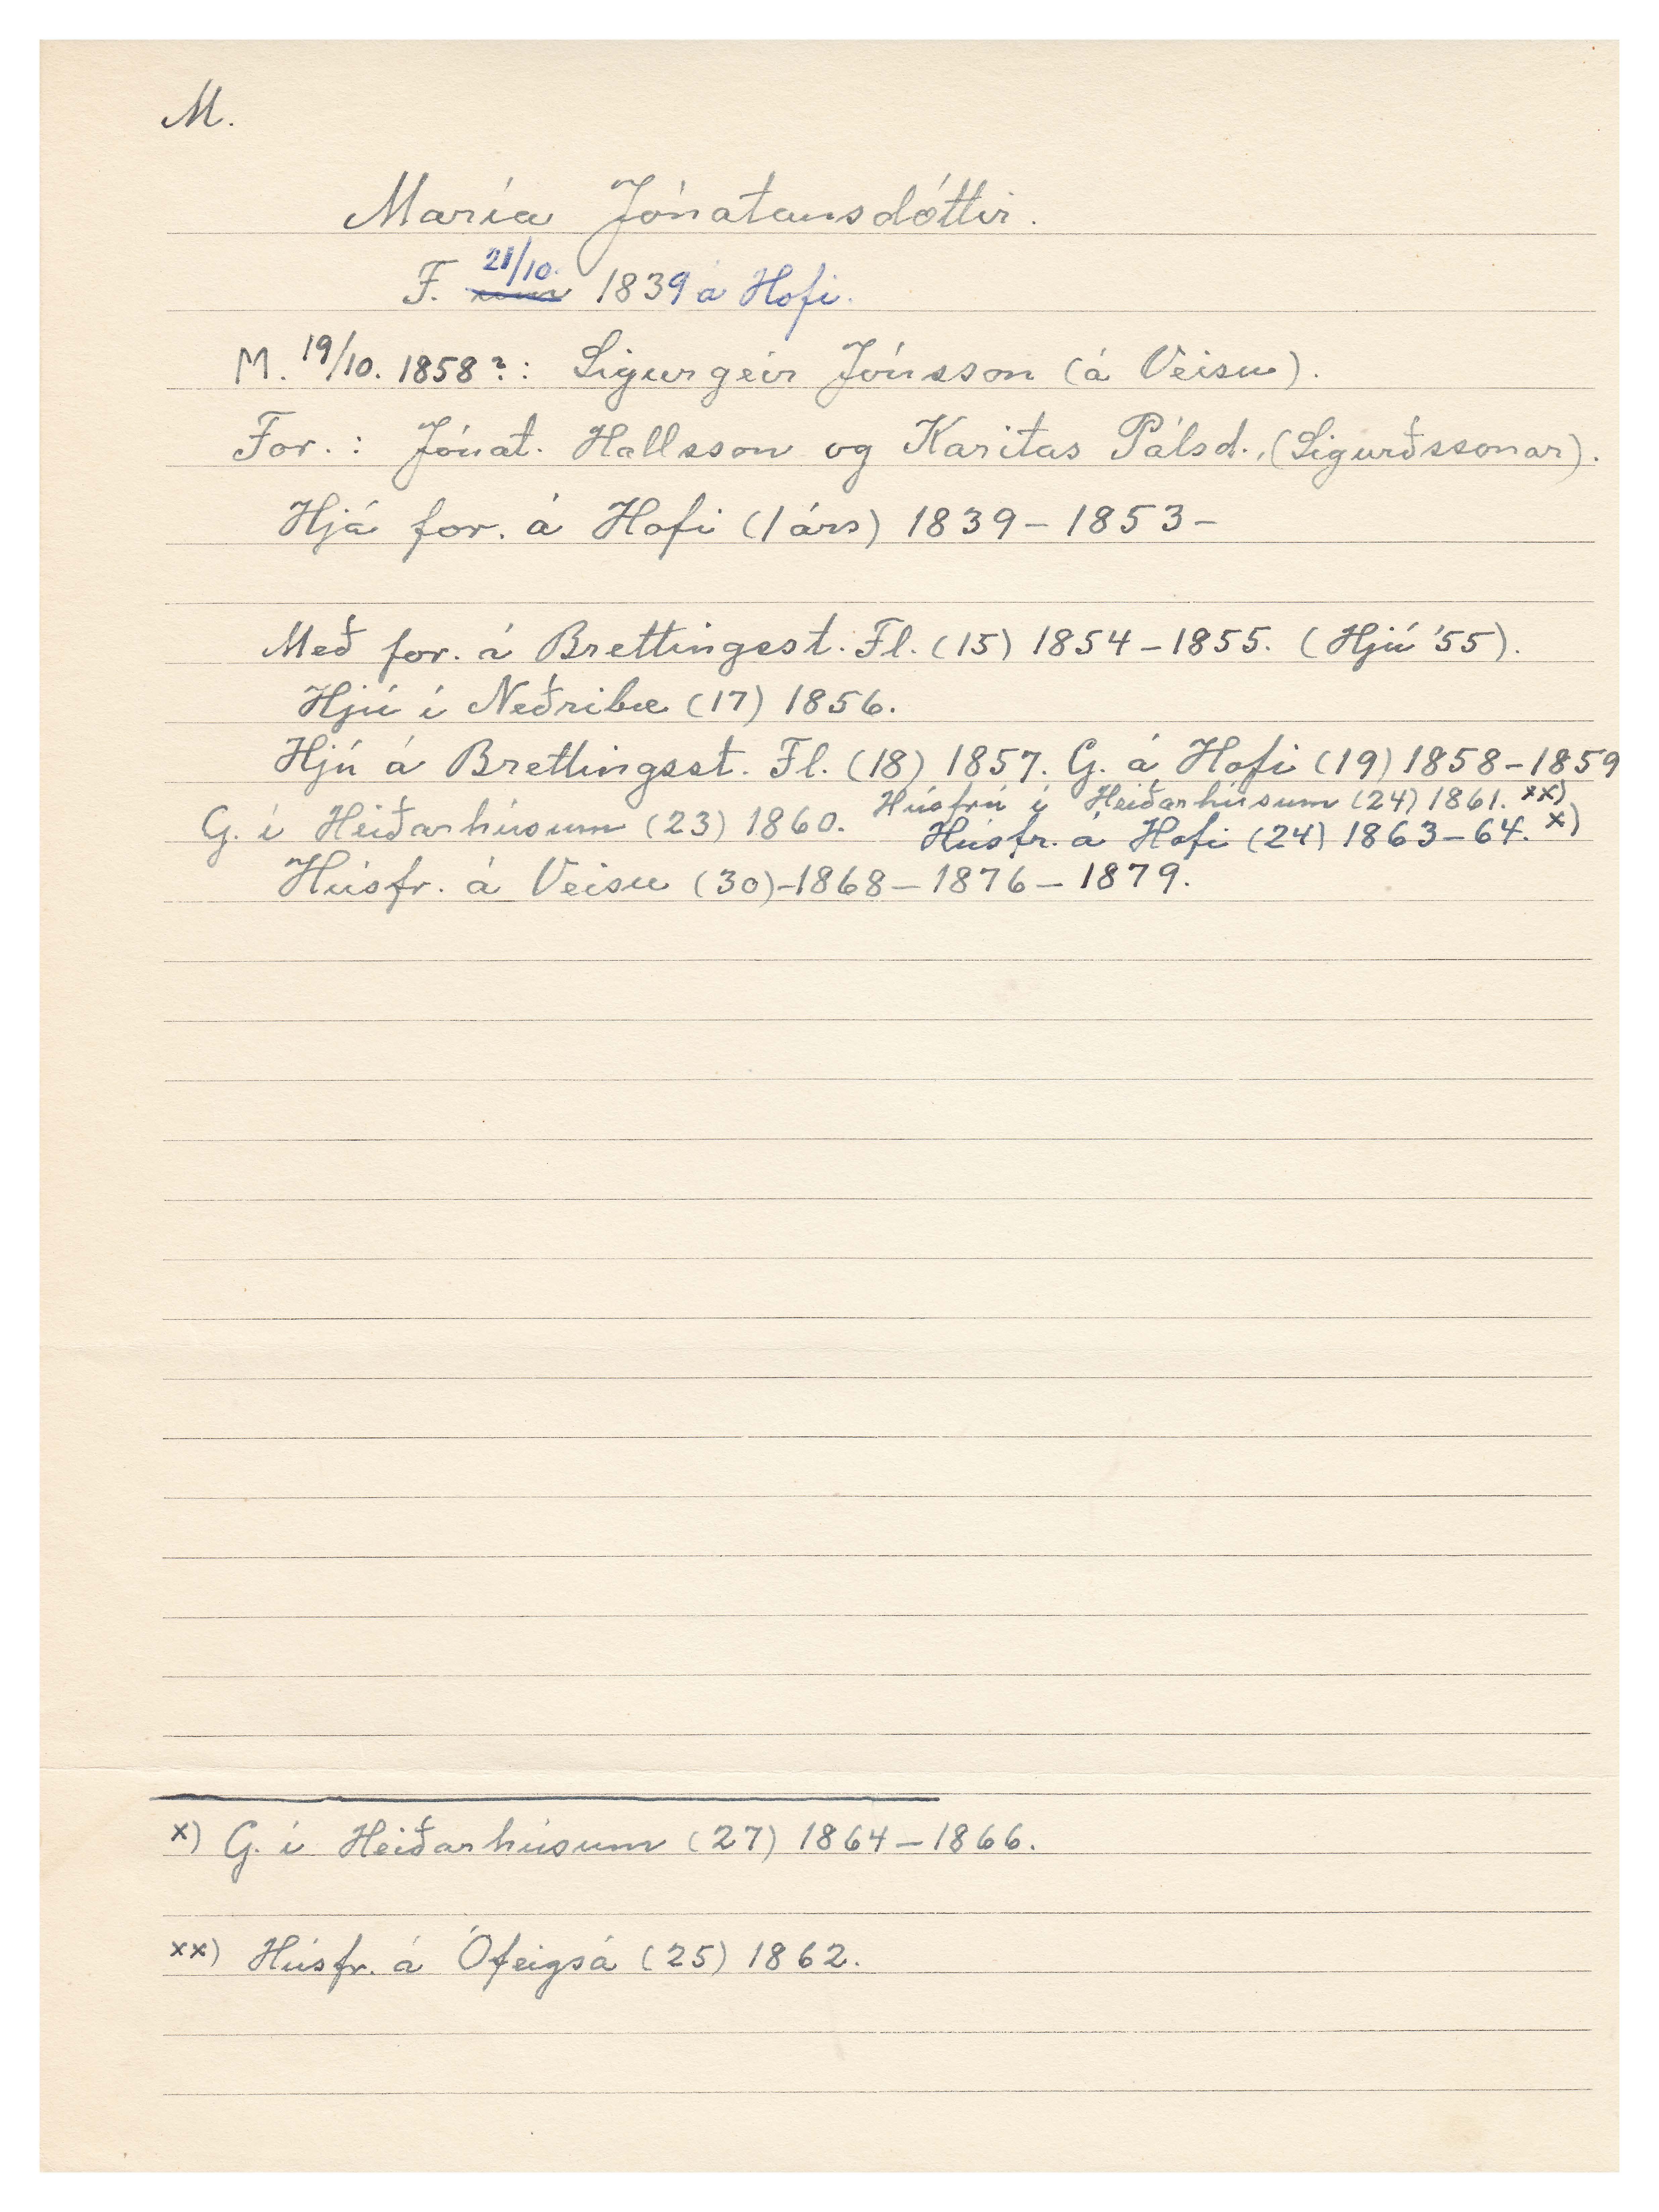 M.
María Jónatansdóttir.
F. 21/10. 1839 á Hofi.
M. 19/10. 1858?: Sigurgeir Jónsson (á Veisu).
For.: Jónat. Hallsson og Karitas Pálsd., (Sigurðssonar).
Hjá for. á Hofi (1 árs) 1839-1853-
Með for. á Brettingsst. Fl. (15) 1854-1855. (Hjú '55).
Hjú í Neðribæ (17) 1856.
Hjú á Brettingsst. Fl. (18) 1857. G. á Hofi (19) 1858-1859
Húsfrú í Heiðarhúsum (24) 1861. xx)
G. í Heiðarhúsum (23) 1860. Húsfr. á Hofi (24) 1863-64. x)
Húsfr. á Veisu (30)-1868-1876-1879.
x) G. í Heiðarhúsum (27) 1864-1866.
xx) Húsfr. á Ófeigsá (25) 1862.